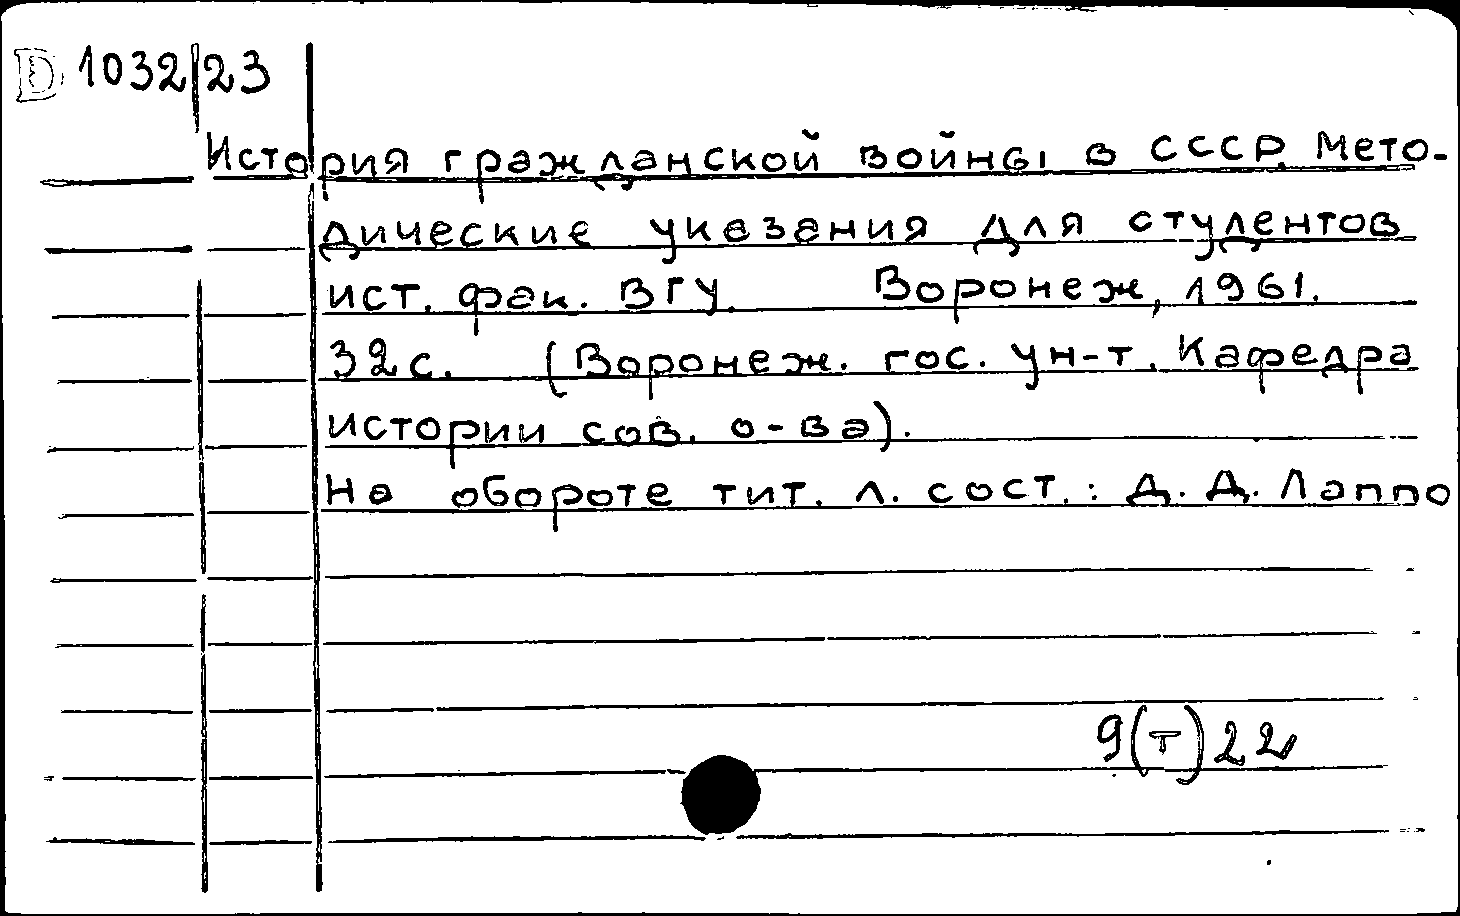 D 1032/23
История гражданской войны в СССР. Мето-
дические указания для студентов
ист. фак. ВГУ. Воронеж, 1961.
32с. (Воронеж. гос. ун-т. Кафедра
истории сов. о-ва).
На обороте тит. л. сост.: Д. Д. Лаппо
9(т)22